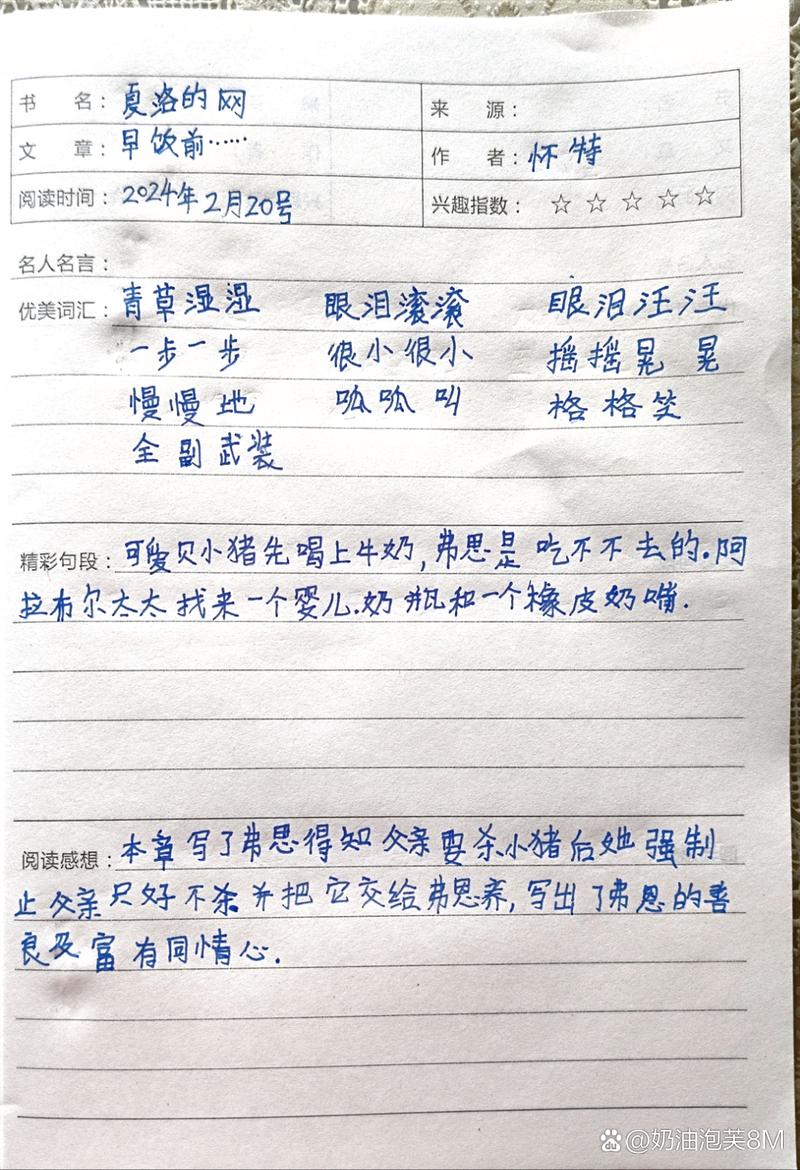 书 名：夏洛的网 来 源：
文 章：早饮前…… 作 者：怀特
阅读时间：2024年2月20号 兴趣指数：☆ ☆ ☆ ☆ ☆
名人名言：
优美词汇：青草湿湿 眼泪滚滚 眼泪汪汪
一步一步 很小很小 摇摇晃晃
慢慢地 呱呱叫 格格笑
全副武装
精彩句段：可爱贝小猪先喝上牛奶,弗思是吃不不去的.阿
拉布尔太太找来一个婴儿.奶瓶和一个橡皮奶嘴.
阅读感想：本章写了弗思得知父亲要杀小猪后她强制
止父亲只好不杀并把它交给弗恩养,写出了弗恩的善
良及富有同情心.
@奶油泡芙8M